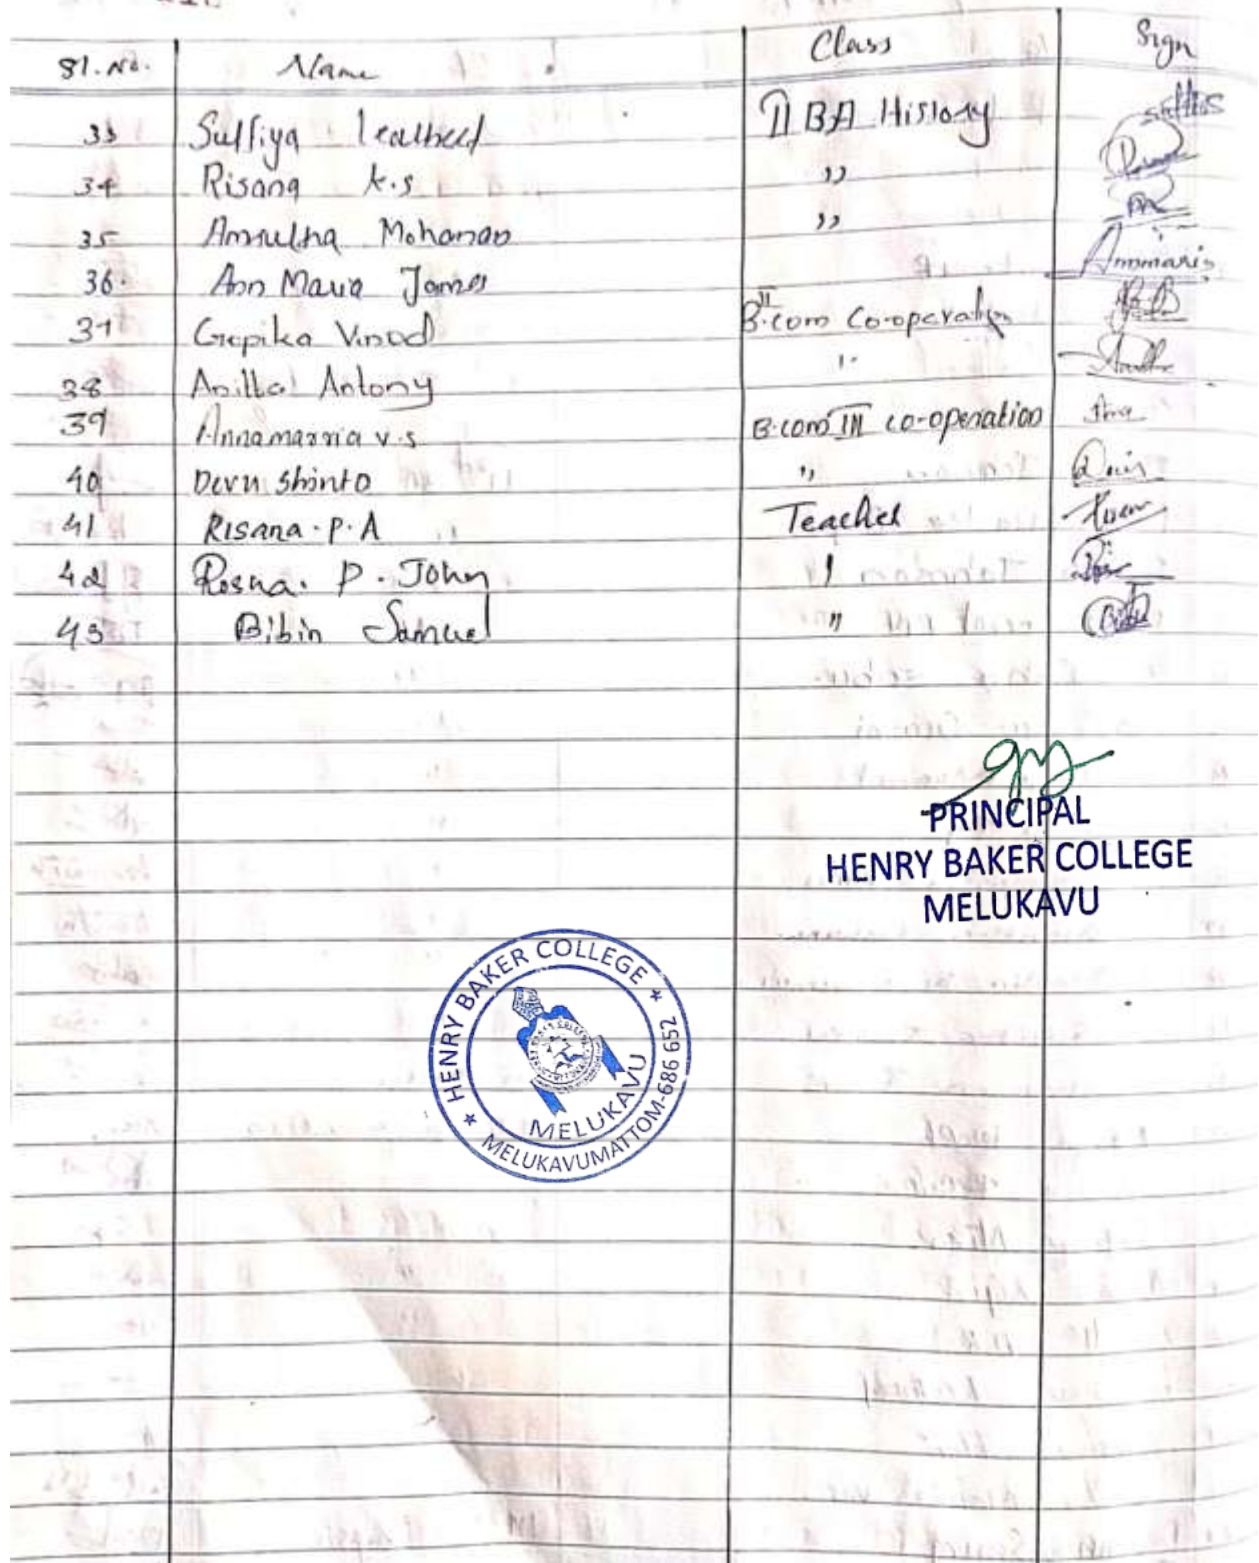 Sl. No. Name Class Sign
33 Suffiya II BA History
34 Risana K.s ,,
35 Amrutha Mohanan ,,
36. Ann Maria James Annmaria
37 Gopika Vinod II B.com Co-operation
38 Antony "
39 Annamarria v.s B.com III co-operation
40 Devu Shinto ,,
41 Risana. P. A Teacher
42 Rosna. P. John "
43 Bibin Samuel "
PRINCIPAL
HENRY BAKER COLLEGE
MELUKAVU
HENRY BAKER COLLEGE
MELUKAVU
MELUKAVUMATTOM-686 652